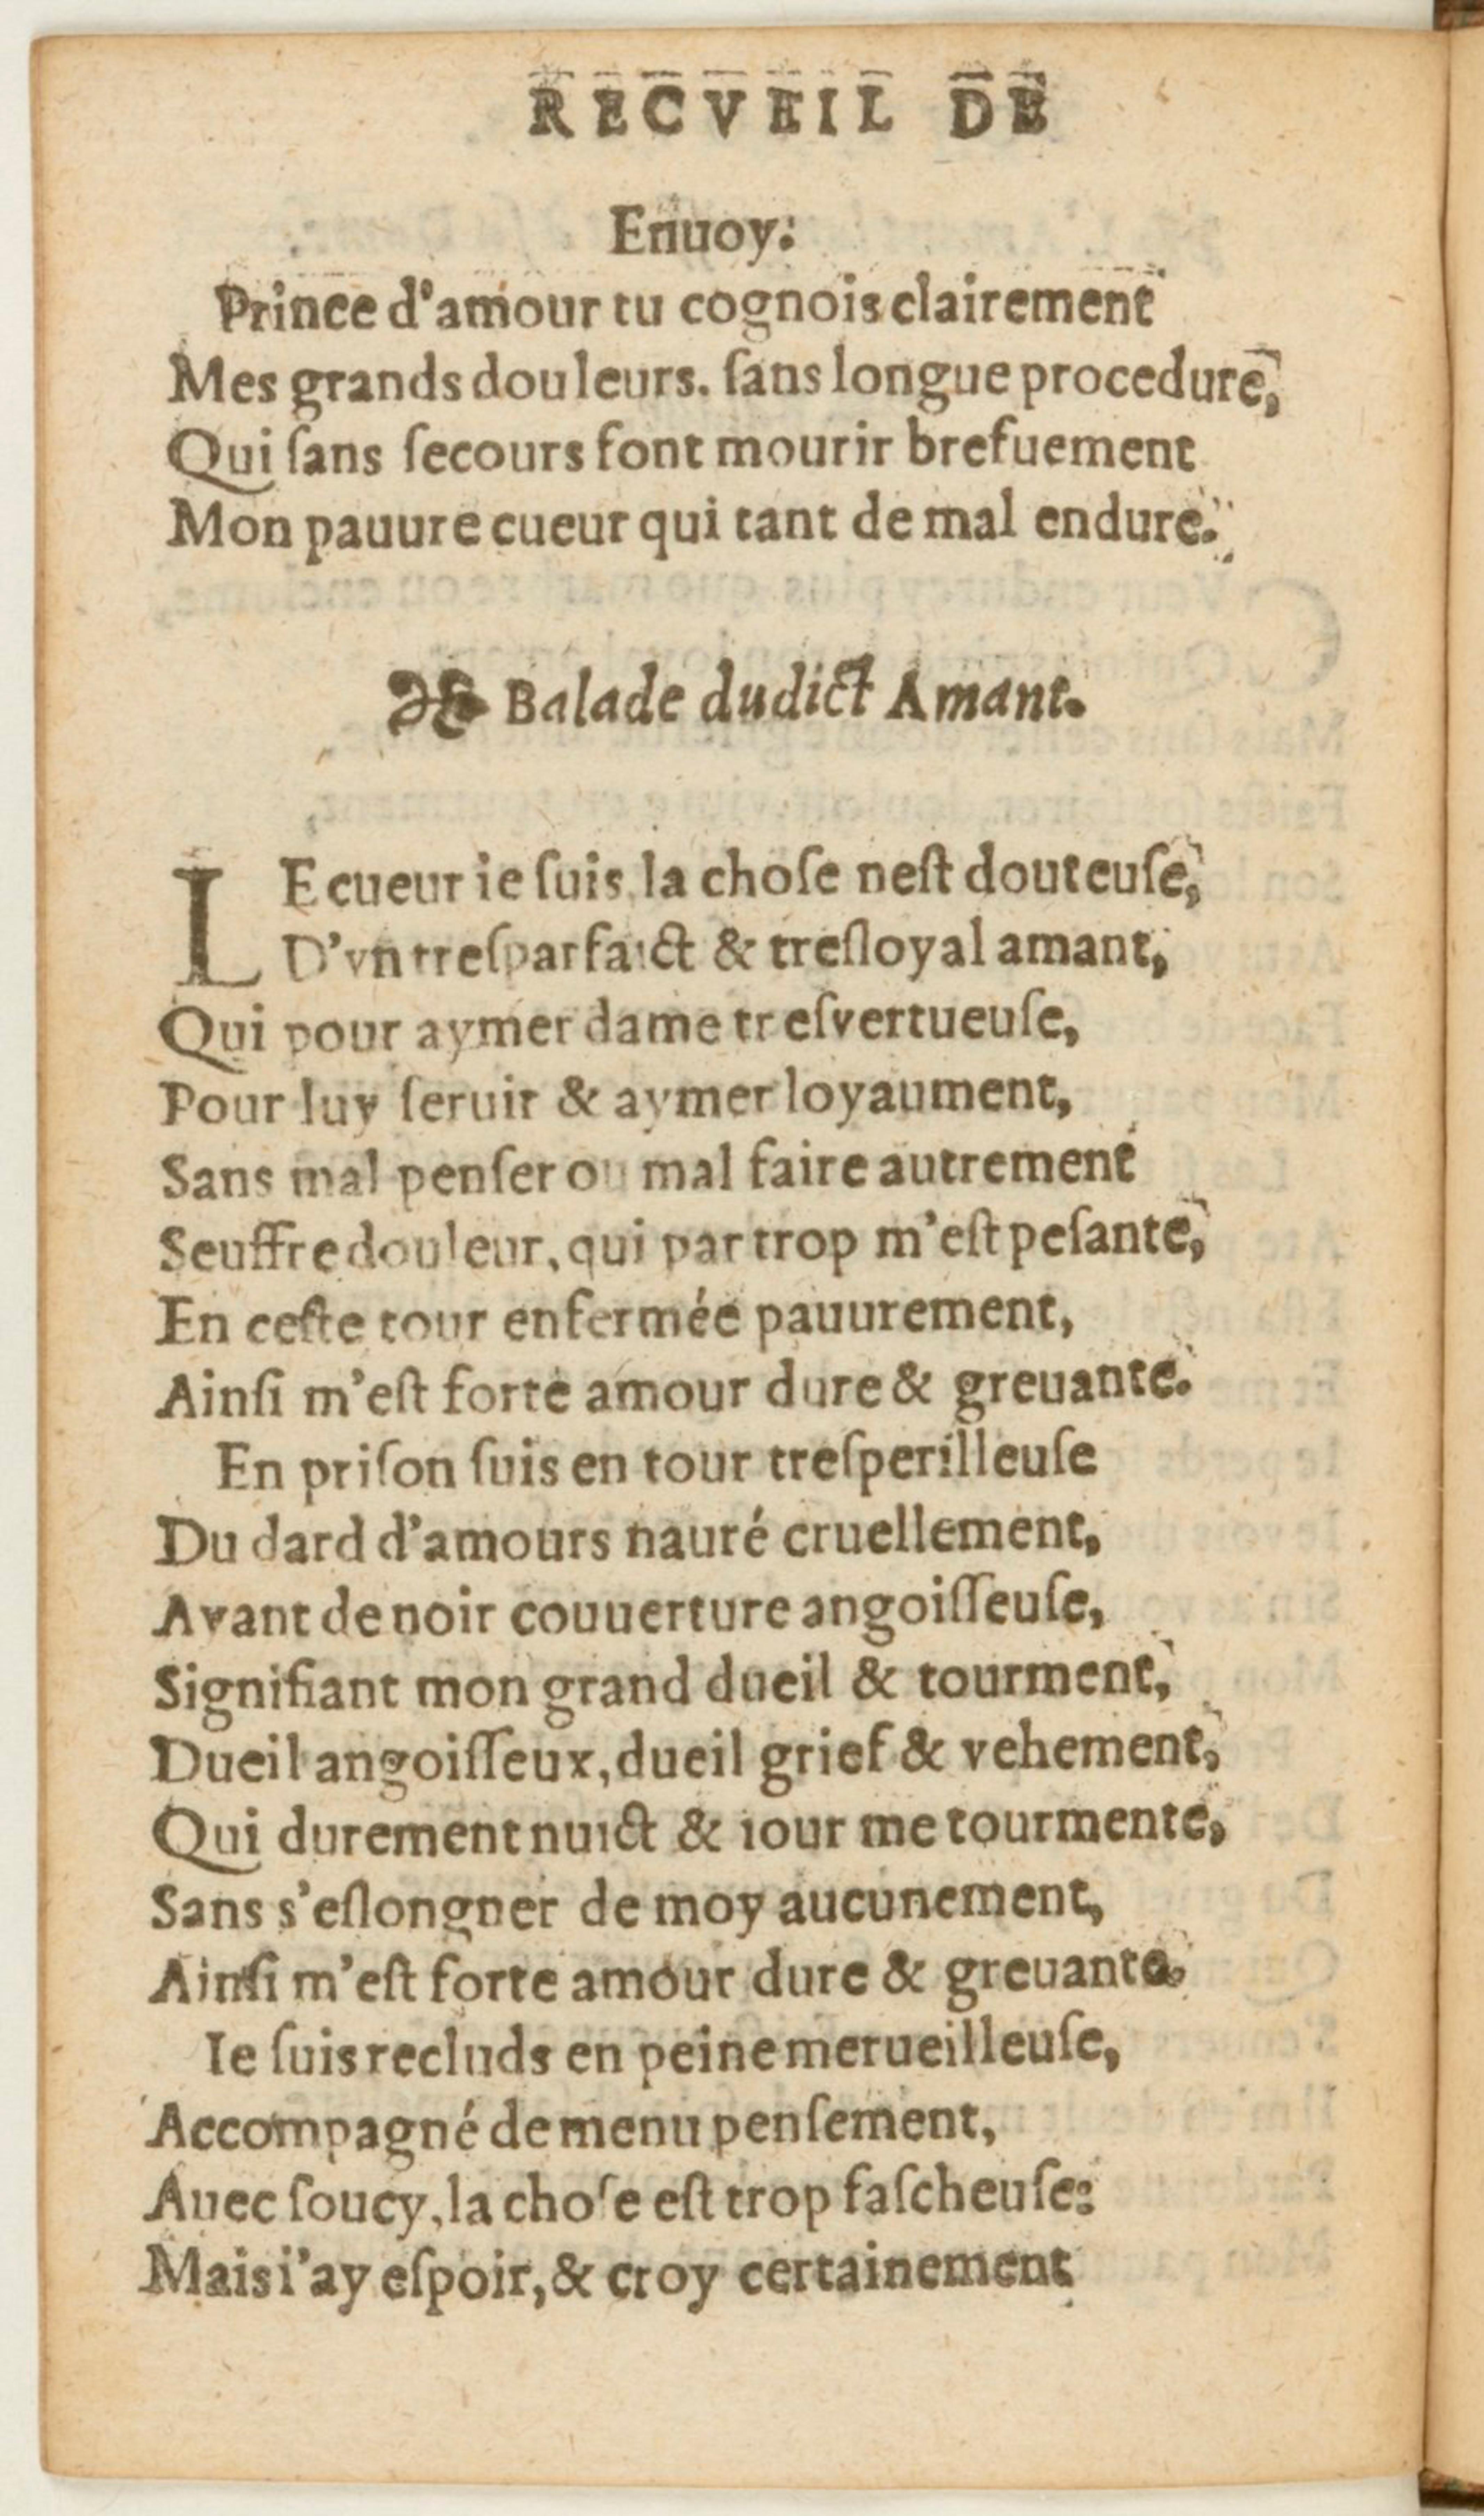 RECVEIL DE
Enuoy.
Prince d'amour tu cognois clairement
Mes grands douleurs. ſans longue procedure,
Qui ſans ſecours font mourir brefuement
Mon pauure cueur qui tant de mal endure.
Balade dudict Amant.
LE cueur ie ſuis, la choſe neſt douteuſe,
D'vn treſparfaict & treſloyal amant,
Qui pour aymer dame treſvertueuſe,
Pour luy ſeruir & aymer loyaument,
Sans mal penſer ou mal faire autrement
Seuffre douleur, qui par trop m'eſt peſante,
En ceſte tour enfermée pauurement,
Ainſi m'eſt forte amour dure & greuante.
En priſon ſuis en tour treſperilleuſe
Du dard d'amours nauré cruellement,
Ayant de noir couuerture angoiſſeuſe,
Signifiant mon grand dueil & tourment,
Dueil angoiſſeux, dueil grief & vehement,
Qui durement nuict & iour me tourmente,
Sans s'eſlongner de moy aucunement,
Ainſi m'eſt forte amour dure & greuante.
Ie ſuis recluds en peine merueilleuſe,
Accompagné de menu penſement,
Auec ſoucy, la choſe eſt trop faſcheuſe:
Mais i'ay eſpoir, & croy certainement